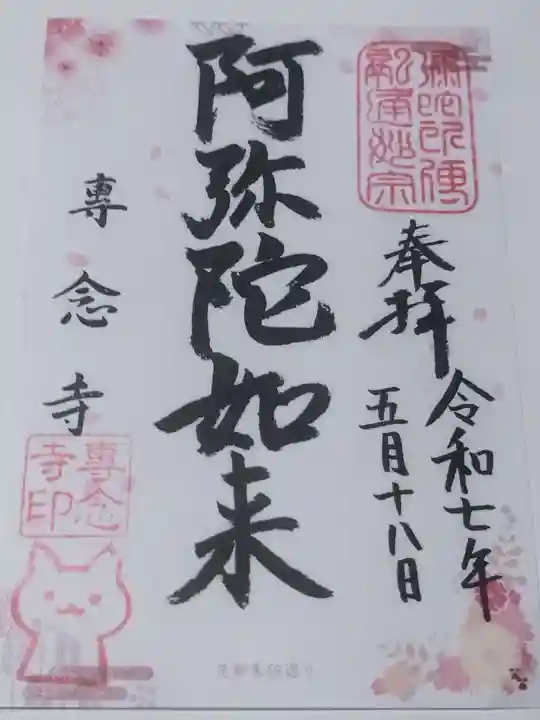 奉拝
令和七年
五月十八日
阿弥陀如来
專念寺
專念
寺印